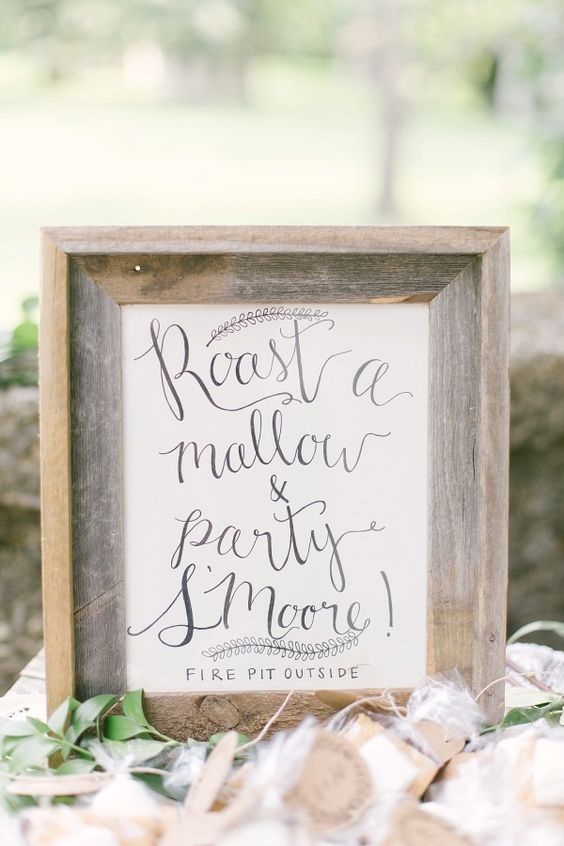 Roast a
mallow
&
party
S'Moore!
FIRE PIT OUTSIDE